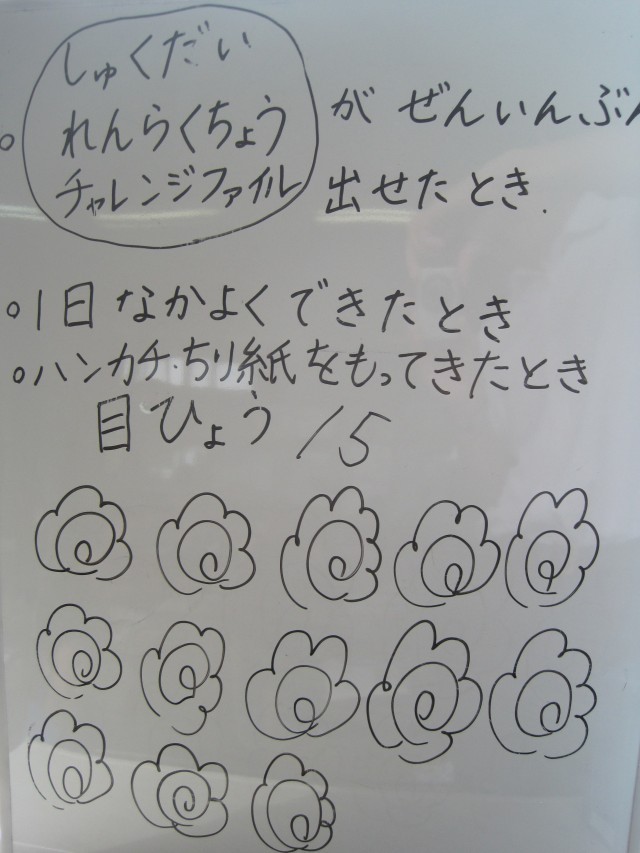 しゅくだい
れんらくちょう
チャレンジファイル
が ぜんいんぶん
出せたとき.
○1日なかよくできたとき
○ハンカチ・ちり紙をもってきたとき
目ひょう 15